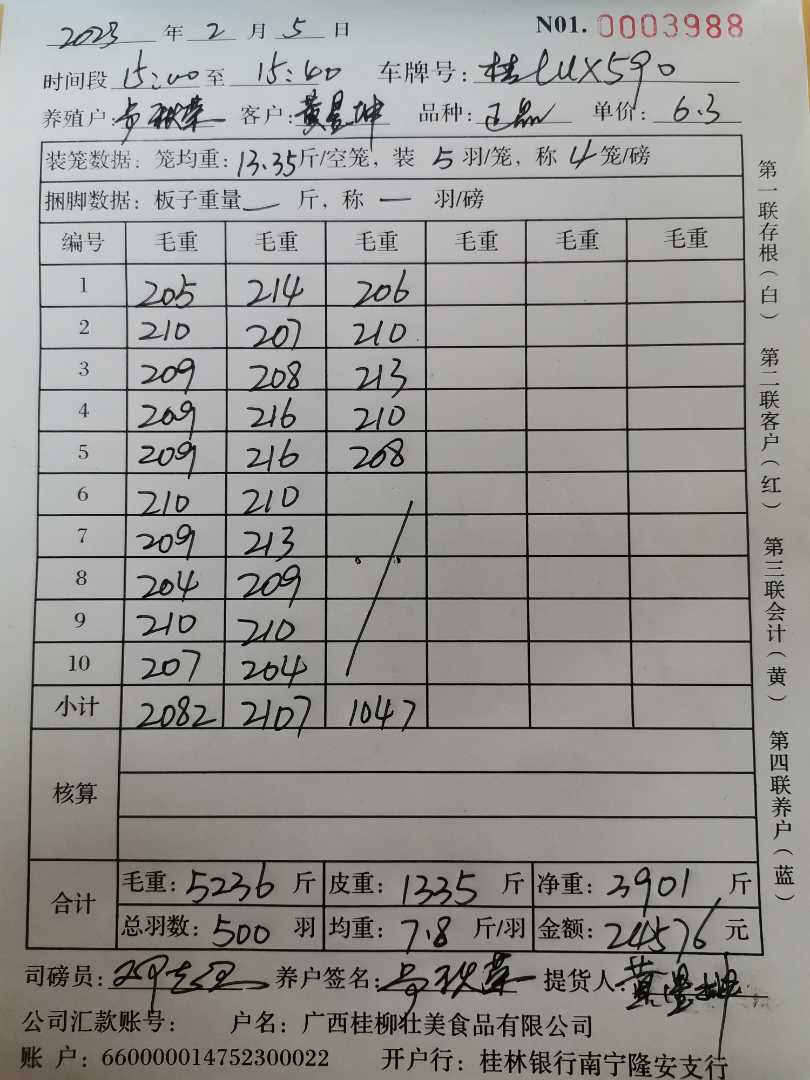 2023 年 2 月 5 日 N01. 0003988
时间段 15:00 至 15:40 车牌号: 桂 X590
养殖户: 客户: 黄昱坤 品种: 正品 单价: 6.3
装笼数据: 笼均重: 13.35 斤/空笼, 装 5 羽/笼, 称 4 笼/磅
捆脚数据: 板子重量 — 斤, 称 — 羽/磅
编号 毛重 毛重 毛重 毛重 毛重 毛重
1 205 214 206
2 210 207 210
3 209 208 213
4 209 216 210
5 209 216 208
6 210 210
7 209 213
8 204 209
9 210 210
10 207 204
小计 2082 2107 1047
核算
合计
毛重: 5236 斤 皮重: 1335 斤 净重: 3901 斤
总羽数: 500 羽 均重: 7.8 斤/羽 金额: 24576 元
司磅员: 养户签名: 提货人: 黄昱坤
公司汇款账号: 户名: 广西桂柳壮美食品有限公司
账 户: 660000014752300022 开户行: 桂林银行南宁隆安支行
第一联存根(白) 第二联客户(红) 第三联会计(黄) 第四联养户(蓝)